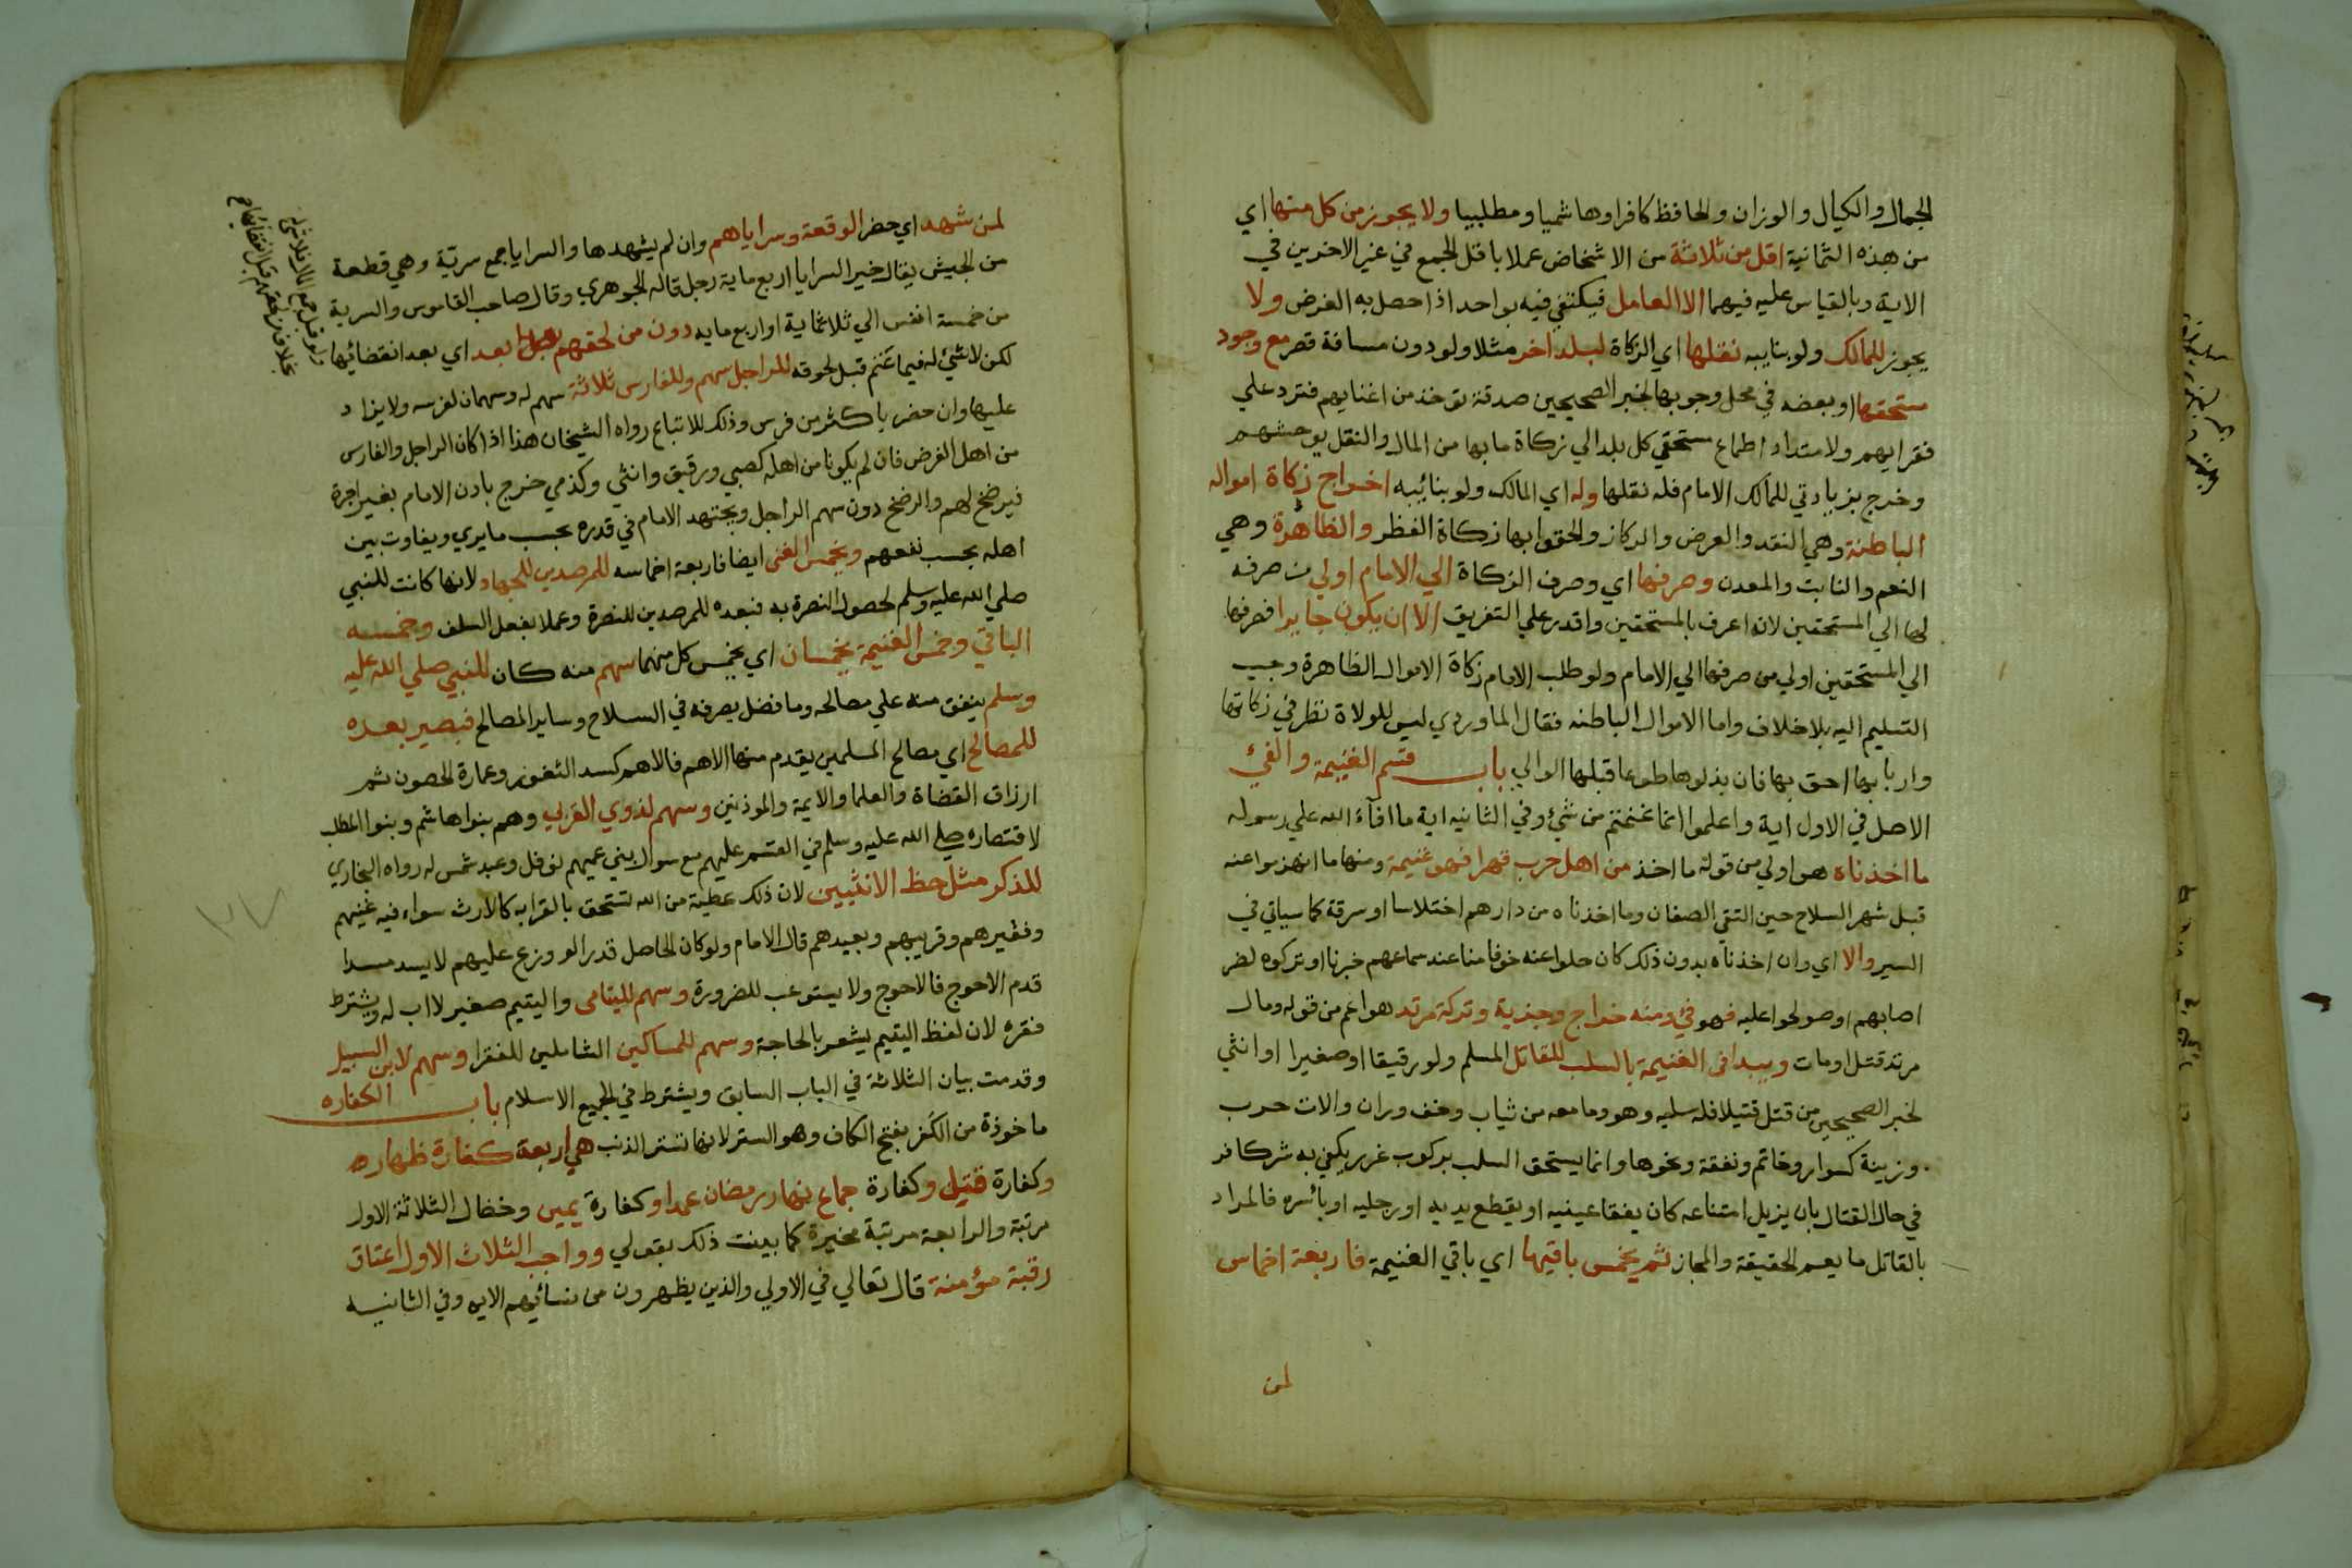 الجمال والكيال والوزان والحافظ كافرا وهاشميا ومطلبيا ولا يجوز من كل منها اي
من هذه الثمانية اقل من ثلاثة من الاشخاص عملا باقل الجمع في غير الاخرين في
الاية وبالقياس عليه فيهما الا العامل فيكتفي فيه بواحد اذا حصل به الغرض ولا
يجوز للمالك ولو بنايبه نقلها اي الزكاة لبلد اخر مثلا ولو دون مسافة قصر مع وجود
مستحقها او بعضه في محل وجوبها لخبر الصحيحين صدقة توخذ من اغنيايهم فترد علي
فقرايهم ولامتداد اطماع مستحقي كل بلد الي زكاة ما بها من المال والنقل يوحشهم
وخرج بزيادتي للمالك الامام فله نقلها وله اي المالك ولو بنائبه اخراج زكاة امواله
الباطنة وهي النقد والعرض والركاز والحقوا بها زكاة الفطر والظاهرة وهي
النعم والنابت والمعدن وصرفها اي وصرف الزكاة الي الامام اولي من صرفه
لها الي المستحقين لانه اعرف بالمستحقين واقدر علي التفريق الا ان يكون جايرا فصرفها
الي المستحقين اولي من صرفها الي الامام ولو طلب الامام زكاة الاموال الظاهرة وجب
التسليم اليه بلا خلاف واما الاموال الباطنه فقال الماوردي ليس للولاة نظر في زكاتها
واربابها احق بها فان بذلوها طوعا قبلها الوالي باب قسم الغنيمة والفيء
الاصل في الاول اية واعلموا انما غنمتم من شيء وفي الثانيه اية ما افآء الله علي رسوله
ما اخذناه هو اولي من قوله ما اخذ من اهل حرب قهرا فهو غنيمة ومنها ما انهزموا عنه
قبل شهر السلاح حين التقي الصفان وما اخذناه من دارهم اختلاسا او سرقة كما سياتي في
السير والا اي وان اخذناه بدون ذلك كان جلوا عنه خوفا منا عند سماعهم خبرنا او تركوه لضر
اصابهم او صولحوا عليه فهو فيء ومنه خراج وجزية وتركة مرتد هو اعم من قوله ومال
مرتد قتل او مات ويبدا في الغنيمة بالسلب للقاتل المسلم ولو رقيقا او صغيرا او انثي
لخبر الصحيحين من قتل قتيلا فله سلبه وهو وما معه من ثياب وخف وران والات حرب
وزينة كسوار وخاتم ونفقة ونحوها وانما يستحق السلب بركوب غرر يكفي به شر كافر
في حال القتال بان يزيل امتناعه كان يفقا عينيه او يقطع يديه او رجليه او بأسره فالمراد
بالقاتل ما يعم الحقيقة والمجاز ثم يخمس باقيها اي باقي الغنيمة فاربعة اخماس
لمن
لمن شهد اي حضر الوقعة وسراياهم وان لم يشهدها والسرايا جمع سرية وهي قطعة
من الجيش يقال خير السرايا اربع ماية رجل قاله الجوهري وقال صاحب القاموس والسرية
من خمسة انفس الي ثلاثماية او اربع مايه دون من لحقهم بعد اي بعد انقضائها
لكن لا شيء له فيما غنم قبل لحوقه للراجل سهم وللفارس ثلاثة سهم له وسهمان لفرسه ولا يزاد
عليها وان حضر باكثر من فرس وذلك للاتباع رواه الشيخان هذا اذا كان الراجل والفارس
من اهل الفرض فان لم يكونا من اهله كصبي ورقيق وانثي وكذمي خرج باذن الامام بغير اجرة
فيرضخ لهم والرضخ دون سهم الراجل ويجتهد الامام في قدره بحسب ما يري ويفاوت بين
اهله بحسب نفعهم ويخمس الفئ ايضا فاربعة اخماسه للمرصدين للجهاد لانها كانت للنبي
صلي الله عليه وسلم لحصول النصرة به فبعده للمرصدين للنصرة وعملا بفعل السلف وخمسه
الباقي وخمس الغنيمة يخمسان اي يخمس كل منهما سهم منه كان للنبي صلي الله عليه
وسلم ينفق منه علي مصالحه وما فضل يصرفه في السلاح وساير المصالح فيصير بعده
للمصالح اي مصالح المسلمين يقدم منها الاهم فالاهم كسد الثغور وعمارة الحصون ثم
ارزاق القضاة والعلما والايمة والموذنين وسهم لذوي القربي وهم بنوا هاشم وبنوا المطلب
لاقتصاره صلي الله عليه وسلم في القسم عليهم مع سوال بني عميهم نوفل وعبد شمس له رواه البخاري
للذكر مثل حظ الانثيين لان ذلك عطية من الله تستحق بالقرابه كالارث سواء فيه غنيهم
وفقيرهم وقريبهم وبعيدهم قال الامام ولو كان الحاصل قدرا لو وزع عليهم لا يسد مسدا
قدم الاحوج فالاحوج ولا يستوعب للضرورة وسهم لليتامى واليتيم صغير لا اب له ويشترط
فقره لان لفظ اليتيم يشعر بالحاجة وسهم للمساكين الشاملين للفقرا وسهم لابن السبيل
وقدمت بيان الثلاثة في الباب السابق ويشترط في الجميع الاسلام باب الكفاره
ماخوذة من الكَفر بفتح الكاف وهو الستر لانها تستر الذنب هي اربعة كفارة ظهاره
وكفارة قتيل وكفارة جماع نهار رمضان عمدا وكفارة يمين وخصال الثلاثة الاول
مرتبة والرابعة مرتبة مخيرة كما بينت ذلك بقولي وواجب الثلاث الاول اعتاق
رقبة مؤمنة قال تعالي في الاولي والذين يظهرون من نسائهم الايه وفي الثانيه